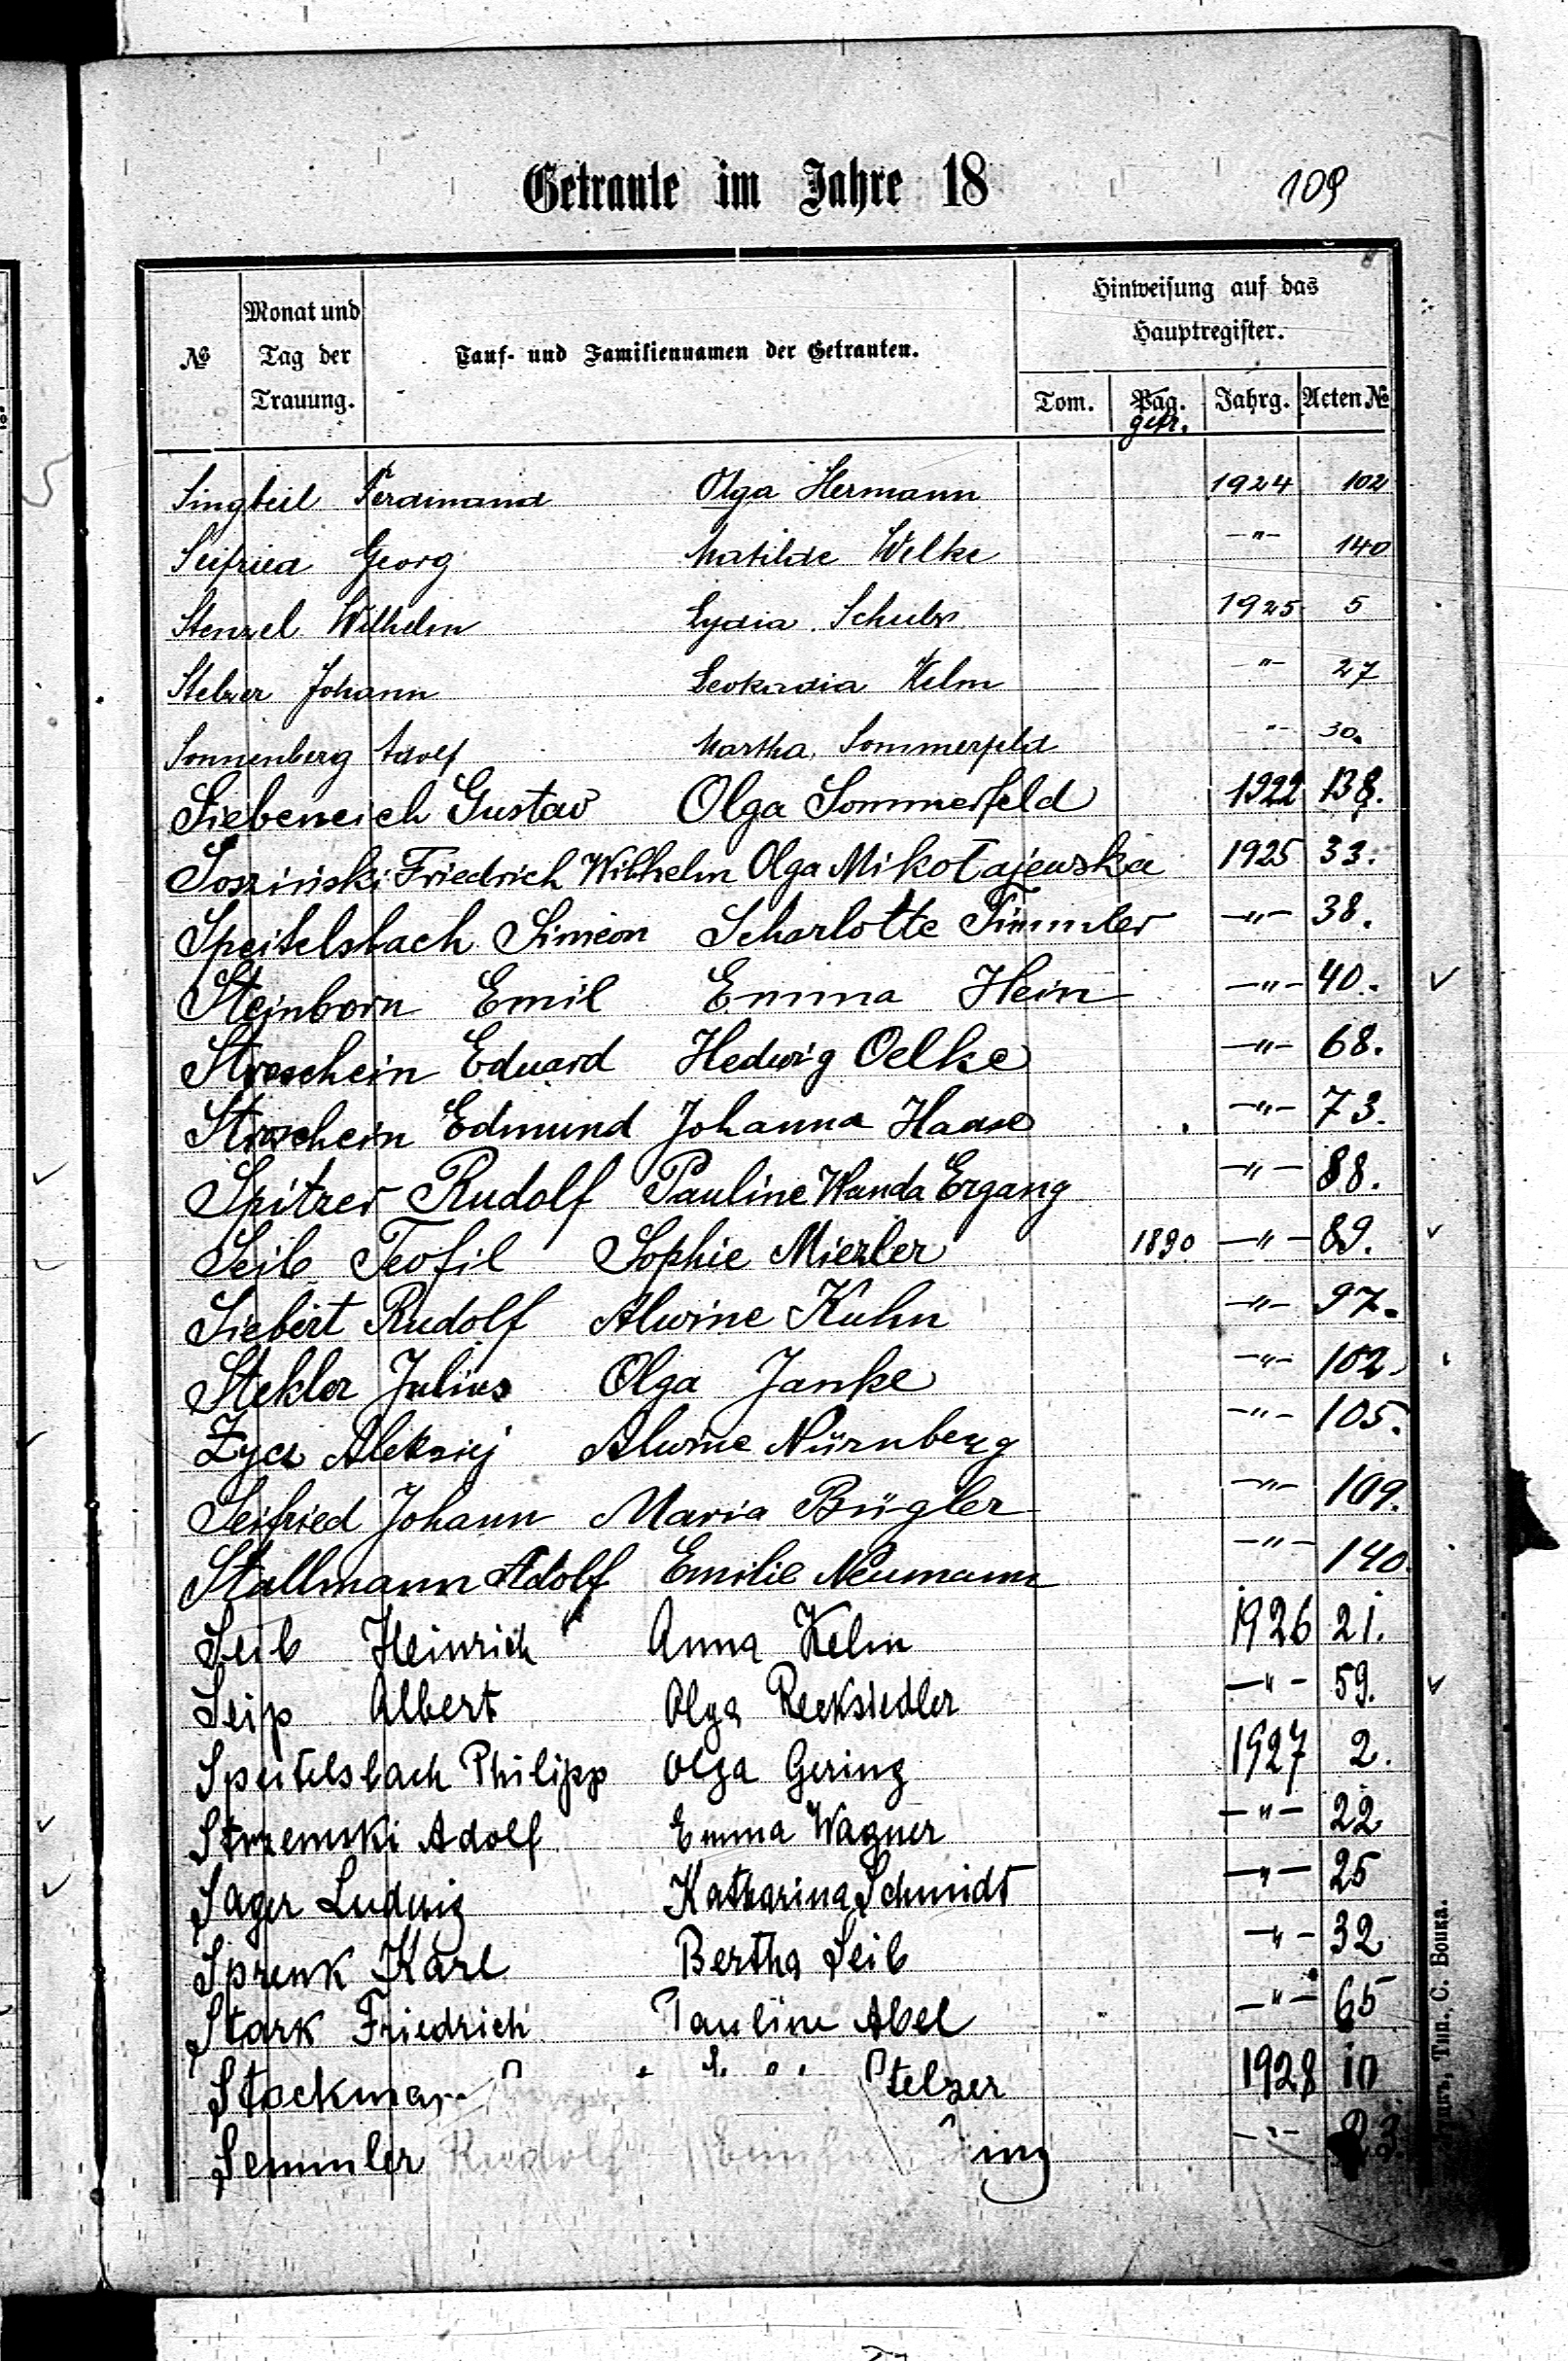 Getraute im Jahre 18 109
№ Monat und Tag der Trauung. Tauf- und Familiennamen der Getrauten. Hinweisung auf das Hauptregister.
Tom. Pag. Jahrg. Acten №
getr.
Singbeil Ferdinand Olga Hermann 1924 102
Seifried Georg Matilde Welke -"- 140
Stenzel Wilhelm Lydia Schulz 1925 5
Stelzer Johann Leokadia Kelm -"- 27
Sonnenberg Adolf Martha Sommerfeld -"- 30.
Siebeneich Gustav Olga Sommerfeld 1922 138.
Sosziński Friedrich Wilhelm Olga Mikołajewska 1925 33.
Speitelsbach Simeon Scharlotte Timmler -"- 38.
Steinborn Emil Emma Hein -"- 40.
Stroschein Eduard Hedwig Oelke -"- 68.
Stroschein Edmund Johanna Haase -"- 73.
Spitzer Rudolf Pauline Wanda Ergang -"- 88.
Seib Teofil Sophie Miezler 1890. -"- 89.
Siebert Rudolf Alwine Kuhn -"- 97.
Stekler Julius Olga Janke -"- 102.
Zycz Aleksiej Alwine Nürnberg -"- 105.
Seifried Johann Maria Bügler -"- 109.
Stallmann Adolf Emilie Neumann -"- 140.
Seib Heinrich Anna Kelm 1926 21.
Seip Albert Olga Recksiedler -"- 59.
Speitelsbach Philipp Olga Gering 1927 2.
Strzemski Adolf Emma Wagner -"- 22
Sager Ludwig Katharina Schmidt -"- 25
Sprenk Karl Bertha Seib -"- 32
Stark Friedrich Pauline Abel -"- 65
Stockman Stelzer 1928 10
Semmler Rudolf -"-
Тип. С. Вошка.